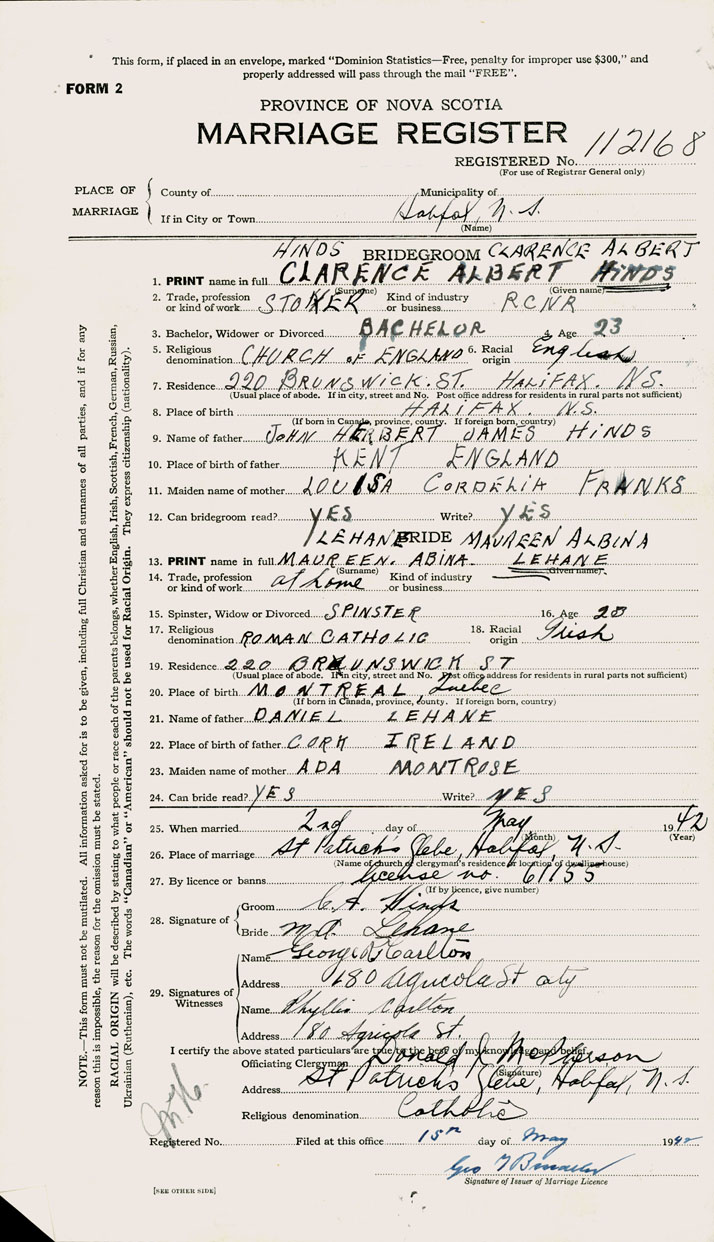 This form, if placed in an envelope, marked "Dominion Statistics—Free, penalty for improper use $300," and
properly addressed will pass through the mail "FREE".
FORM 2
PROVINCE OF NOVA SCOTIA
MARRIAGE REGISTER
REGISTERED No. 112168
(For use of Registrar General only)
PLACE OF MARRIAGE
County of Municipality of
If in City or Town Halifax, N.S.
(Name)
HINDS BRIDEGROOM CLARENCE ALBERT
1. PRINT name in full CLARENCE ALBERT HINDS
(Surname) (Given name)
2. Trade, profession or kind of work STOKER Kind of industry or business RCNR
3. Bachelor, Widower or Divorced BACHELOR 4. Age 23
5. Religious denomination CHURCH OF ENGLAND 6. Racial origin English
7. Residence 220 BRUNSWICK. ST. HALIFAX. N.S.
(Usual place of abode. If in city, street and No. Post office address for residents in rural parts not sufficient)
8. Place of birth HALIFAX. N.S.
(If born in Canada, province, county. If foreign born, country)
9. Name of father JOHN HERBERT JAMES HINDS
10. Place of birth of father KENT ENGLAND
11. Maiden name of mother LOUISA CORDELIA FRANKS
12. Can bridegroom read? YES Write? YES
LEHANE BRIDE MAUREEN ALBINA
13. PRINT name in full MAUREEN. ABINA. LEHANE
(Surname) (Given name)
14. Trade, profession or kind of work at home Kind of industry or business
15. Spinster, Widow or Divorced SPINSTER 16. Age 20
17. Religious denomination ROMAN CATHOLIC 18. Racial origin Irish
19. Residence 220 BRUNSWICK ST
(Usual place of abode. If in city, street and No. Post office address for residents in rural parts not sufficient)
20. Place of birth MONTREAL, Quebec
(If born in Canada, province, county. If foreign born, country)
21. Name of father DANIEL LEHANE
22. Place of birth of father CORK IRELAND
23. Maiden name of mother ADA MONTROSE
24. Can bride read? YES Write? YES
25. When married 2nd day of May 1942
(Month) (Year)
26. Place of marriage St Patrick's Glebe, Halifax, N.S.
(Name of church or clergyman's residence or location of dwelling house)
27. By licence or banns License no. 61155
(If by licence, give number)
28. Signature of
Groom C. A. Hinds
Bride M. A. Lehane
29. Signatures of Witnesses
Name George R Carlton
Address 180 Agricola St city
Name Phyllis Carlton
Address 180 Agricola St.
I certify the above stated particulars are true to the best of my knowledge and belief.
Officiating Clergyman Donald J McPherson
(Signature)
Address St Patrick's Glebe, Halifax, N.S.
Religious denomination Catholic
Registered No. Filed at this office 15th day of May 1942
Geo
Signature of Issuer of Marriage Licence
[SEE OTHER SIDE]
NOTE.—This form must not be mutilated. All information asked for is to be given, including full Christian and surnames of all parties, and if for any
reason this is impossible, the reason for the omission must be stated.
RACIAL ORIGIN will be described by stating to what people or race each of the parents belongs, whether English, Irish, Scottish, French, German, Russian,
Ukrainian (Ruthenian), etc. The words "Canadian" or "American" should not be used for Racial Origin. They express citizenship (nationality).